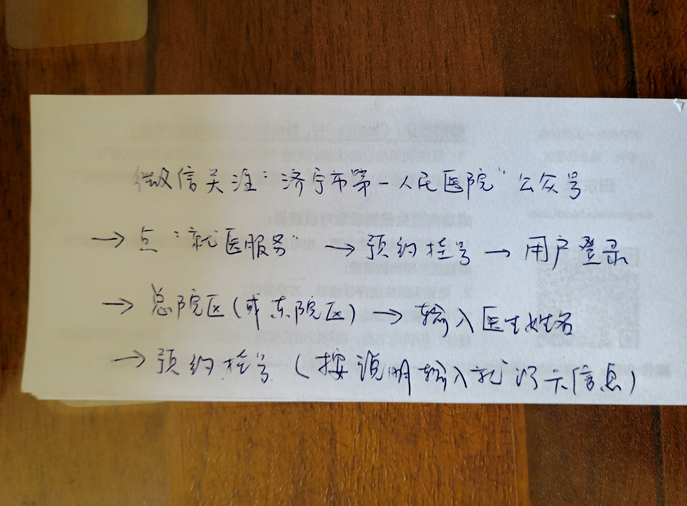 微信关注“济宁市第一人民医院”公众号
→ 点“就医服务” → 预约挂号 → 用户登录
→ 总院区(或东院区) → 输入医生姓名
→ 预约挂号 (按说明输入就诊卡信息)